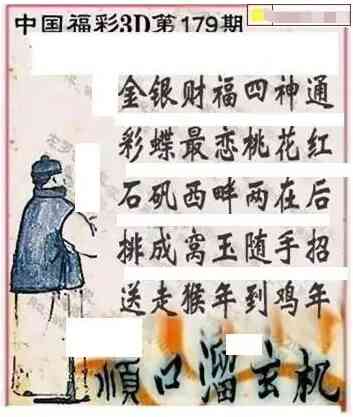 中国福彩3D第179期
金银财福四神通
彩蝶最恋桃花红
石矶西畔两在后
排成窝玉随手招
送走猴年到鸡年
顺口溜玄机